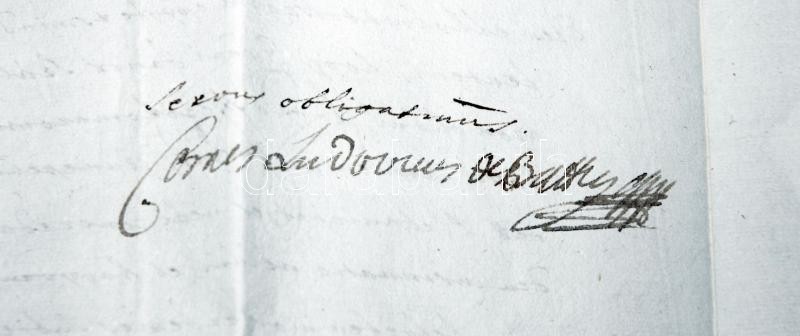 servus obligatmus.
Comes Ludovicus de Batthyany